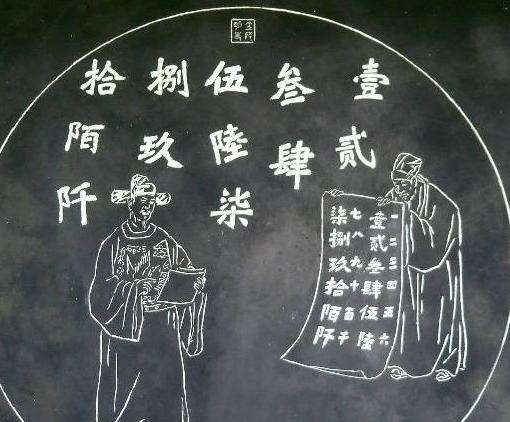 壹貳
叁肆
伍陸柒
捌玖
拾陌阡
一二三四五六
壹貳叁肆伍陸
七八九十百千
柒捌玖拾陌阡